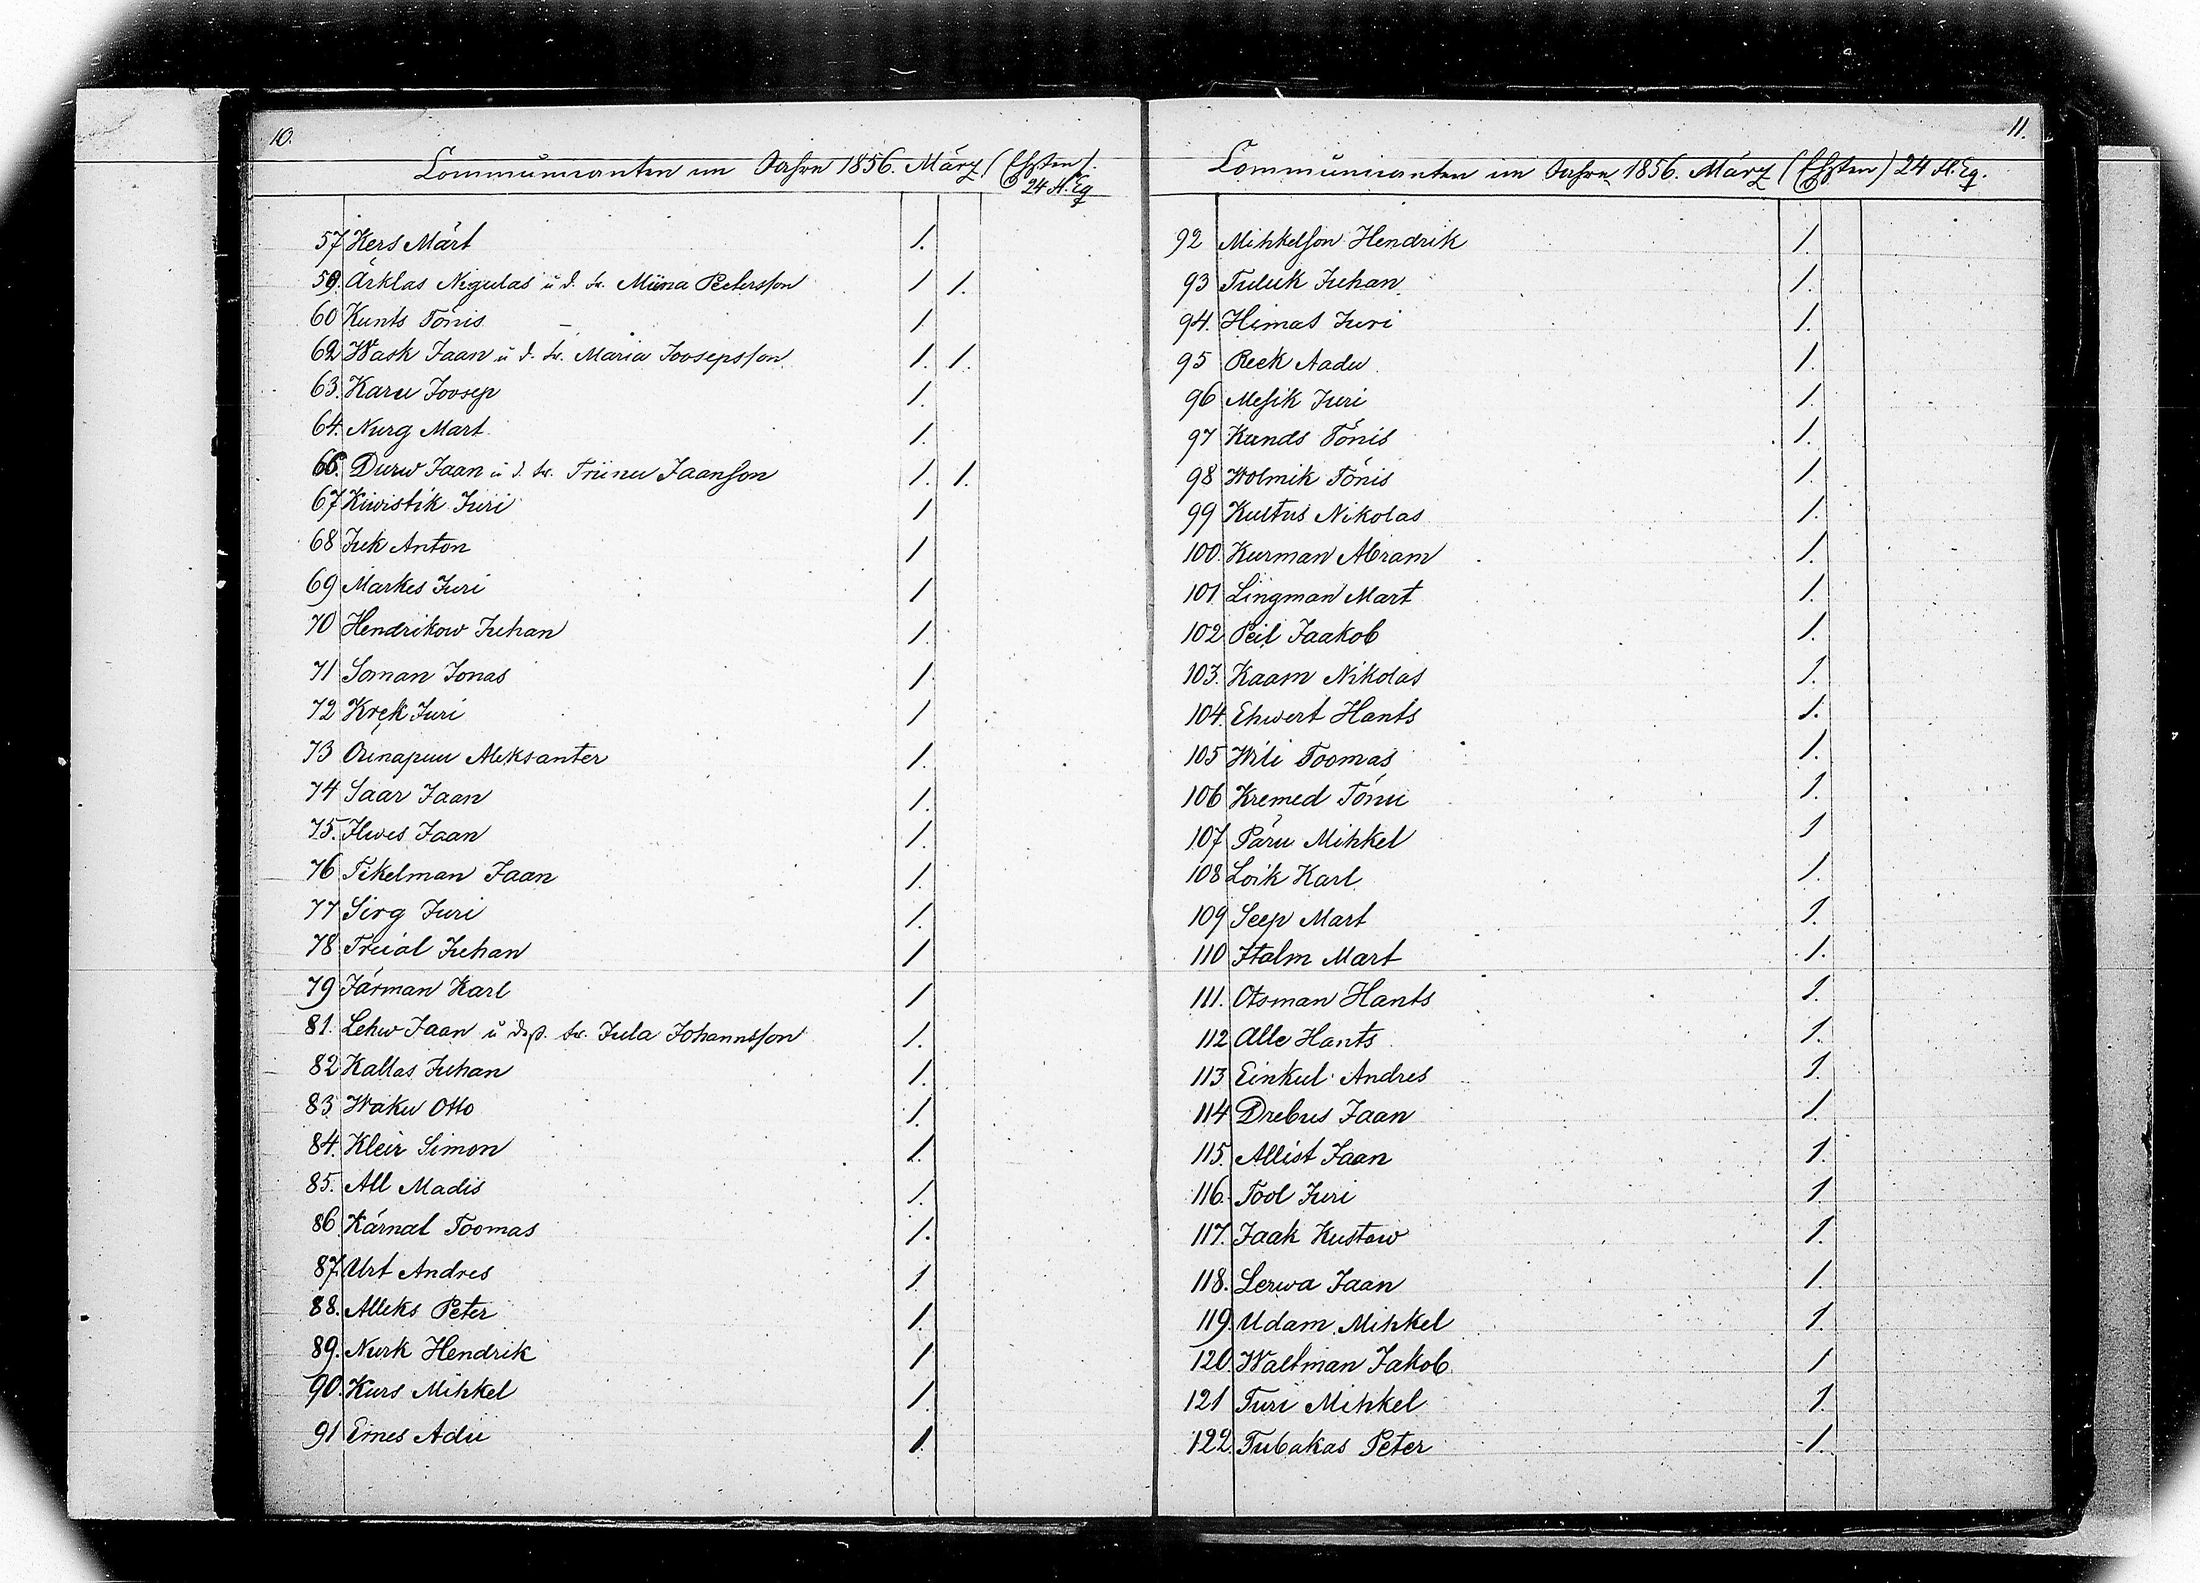 10.
Communicanten im Jahre 1856. März (Ehsten).
24 H. Eg
57 Kers Märt 1.
59. Ärklas Nigulas u d. Fr. Miina Peetersson 1 1.
60 Kunts Tönis 1
62 Wask Jaan u d. Fr. Maria Joosepsson 1. 1.
63. Karu Joosep 1.
64. Nurg Mart 1.
66. Durw Jaan u d. Fr. Triinu Jaanson 1. 1.
67 Kiwistik Juri 1
68 Juk Anton 1
69 Markes Juri 1
70 Hendrikow Juhan 1.
71 Soman Jonas 1
72 Krek Juri 1
73 Ounapuu Aleksanter 1.
74 Saar Jaan 1.
75. Ilwes Jaan 1.
76 Tikelman Jaan 1.
77 Sirg Juri 1.
78 Treial Juhan 1
79 Järman Karl 1
81. Lehw Jaan u deß. Fr. Jula Johannsson 1.
82 Kallas Juhan 1.
83 Waku Otto 1.
84. Kleir Simon 1.
85. All Madis 1.
86 Kärnal Toomas 1.
87. Urt Andres 1
88. Alleks Peter 1.
89. Nurk Hendrik 1
90. Kurs Mihkel 1.
91 Ernes Adu 1.
11.
Communicanten im Jahre 1856. März (Ehsten) 24 H. Eg.
92 Mihkelson Hendrik 1.
93 Tuluk Juhan 1.
94. Himas Juri 1.
95 Reek Aadu 1.
96 Mesik Juri 1.
97 Kunds Tönis 1.
98 Wolmik Tönis 1.
99 Kultus Nikolas 1.
100. Kurman Abram 1.
101 Lingman Mart 1.
102 Peil Jaakob 1.
103. Kaam Nikolas 1.
104. Ehwert Hants 1.
105 Wili Toomas 1.
106 Kremed Tönu 1.
107 Päru Mihkel 1
108 Loik Karl 1.
109 Seep Mart 1.
110 Italm Mart 1.
111. Otsman Hants 1.
112 Alle Hants 1.
113 Einkul Andres 1.
114 Drebus Jaan 1.
115. Allist Jaan 1.
116. Tool Juri 1.
117. Jaak Kustaw 1.
118. Lerwa Jaan 1.
119. Udam Mihkel 1.
120. Waltman Jakob 1
121 Turi Mihkel 1.
122. Tubakas Peter 1.